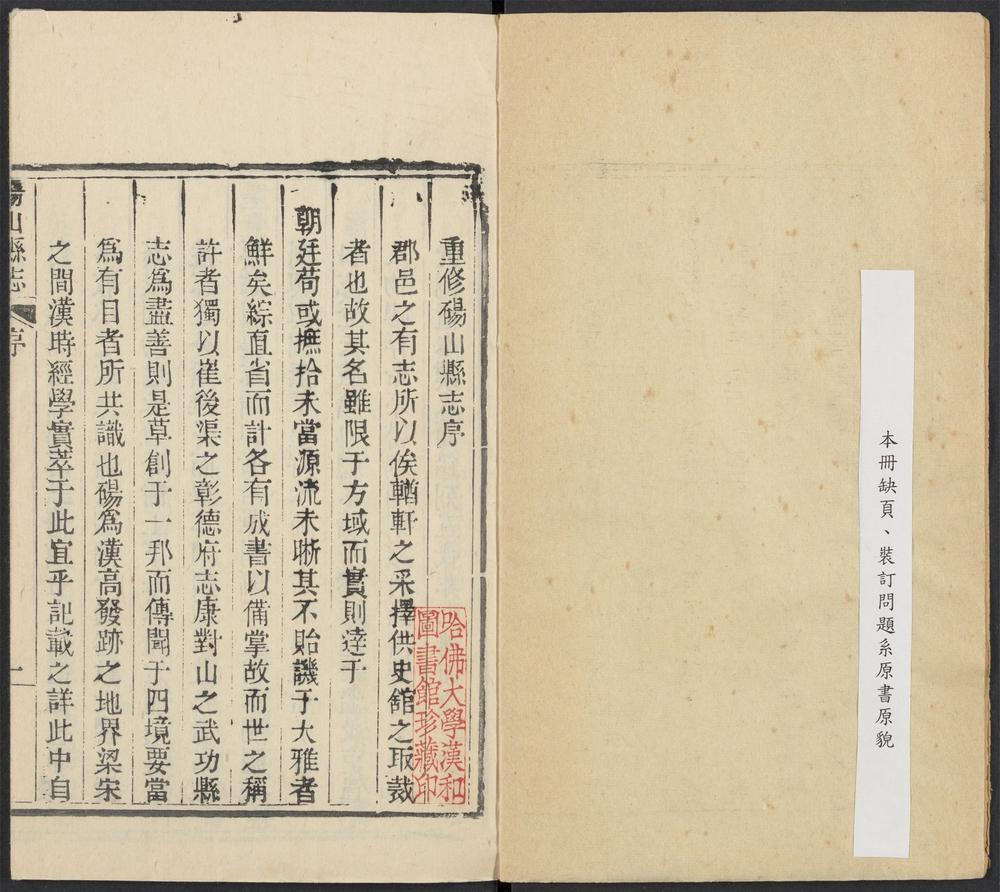 本冊缺頁、裝訂問題系原書原貌
重修碭山縣志序
郡邑之有志所以俟輶軒之采擇供史舘之取裁
者也故其名雖限于方域而實則達于
朝廷苟或摭拾未當源流未晰其不貽譏于大雅者
鮮矣綜直省而計各有成書以備掌故而世之稱
許者獨以崔後渠之彰德府志康對山之武功縣
志爲盡善則是草創于一邦而傳聞于四境要當
爲有目者所共識也碭爲漢高發跡之地界梁宋
之間漢時經學實萃于此宜乎記載之詳此中自
碭山縣志 序 一
哈佛大學漢和
圖書館珍藏印